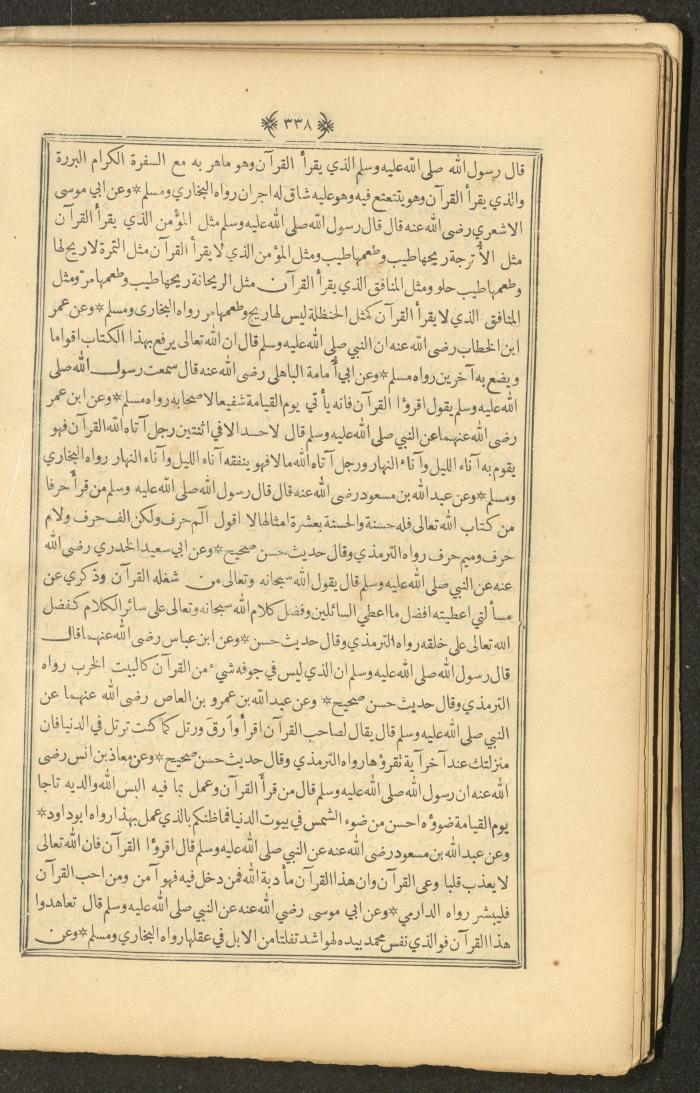 ﴿٣٣٨﴾
قال رسول الله صلى الله عليه وسلم الذي يقرأ القرآن وهو ماهر به مع السفرة الكرام البررة
والذي يقرأ القرآن وهو يتتعتع فيه وهو عليه شاق له اجران رواه البخاري ومسلم * وعن ابي موسى
الاشعري رضى الله عنه قال قال رسول الله صلى الله عليه وسلم مثل المؤمن الذي يقرأ القرآن
مثل الأترجة ريحها طيب وطعمها طيب ومثل المؤمن الذي لا يقرأ القرآن مثل التمرة لا ريح لها
وطعمها طيب حلو ومثل المنافق الذي يقرأ القرآن مثل الريحانة ريحها طيب وطعمها مر ومثل
المنافق الذي لا يقرأ القرآن كمثل الحنظلة ليس لها ريح وطعمها مر رواه البخارى ومسلم * وعن عمر
ابن الخطاب رضى الله عنه ان النبي صلى الله عليه وسلم قال ان الله تعالى يرفع بهذا الكتاب اقواما
ويضع به آخرين رواه مسلم * وعن ابي أمامة الباهلى رضى الله عنه قال سمعت رسول الله صلى
الله عليه وسلم يقول اقروٴا القرآن فانه يأتي يوم القيامة شفيعا لاصحابه رواه مسلم * وعن ابن عمر
رضى الله عنهما عن النبي صلى الله عليه وسلم قال لا حسد الا في اثنتين رجل آتاه الله القرآن فهو
يقوم به آناء الليل وآناء النهار ورجل آتاه الله مالا فهو ينفقه آناء الليل وآناء النهار رواه البخاري
ومسلم * وعن عبد الله بن مسعود رضى الله عنه قال قال رسول الله صلى الله عليه وسلم من قرأ حرفا
من كتاب الله تعالى فله حسنة والحسنة بعشرة امثالها لا اقول الٓم حرف ولكن الف حرف ولام
حرف وميم حرف رواه الترمذي وقال حديث حسن صحيح * وعن ابي سعيد الخدري رضى الله
عنه عن النبي صلى الله عليه وسلم قال يقول الله سبحانه وتعالى من شغله القرآن وذكري عن
مسألتي اعطيته افضل ما اعطي السائلين وفضل كلام الله سبحانه وتعالى على سائر الكلام كفضل
الله تعالى على خلقه رواه الترمذي وقال حديث حسن * وعن ابن عباس رضى الله عنهما قال
قال رسول الله صلى الله عليه وسلم ان الذي ليس في جوفه شيء من القرآن كالبيت الخرب رواه
الترمذي وقال حديث حسن صحيح * وعن عبد الله بن عمرو بن العاص رضى الله عنهما عن
النبي صلى الله عليه وسلم قال يقال لصاحب القرآن اقرأ وارق ورتل كما كنت ترتل في الدنيا فان
منزلتك عند آخر آية تقروٴها رواه الترمذي وقال حديث حسن صحيح * وعن معاذ بن انس رضى
الله عنه ان رسول الله صلى الله عليه وسلم قال من قرأ القرآن وعمل بما فيه البس الله والديه تاجا
يوم القيامة ضوؤه احسن من ضوء الشمس في بيوت الدنيا فما ظنكم بالذي عمل بهذا رواه ابو داود *
وعن عبد الله بن مسعود رضى الله عنه عن النبي صلى الله عليه وسلم قال اقروٴا القرآن فان الله تعالى
لا يعذب قلبا وعى القرآن وان هذا القرآن مأدبة الله فمن دخل فيه فهو آمن ومن احب القرآن
فليبشر رواه الدارمي * وعن ابي موسى رضي الله عنه عن النبي صلى الله عليه وسلم قال تعاهدوا
هذا القرآن فوالذي نفس محمد بيده لهو اشد تفلتا من الابل في عقلها رواه البخاري ومسلم * وعن